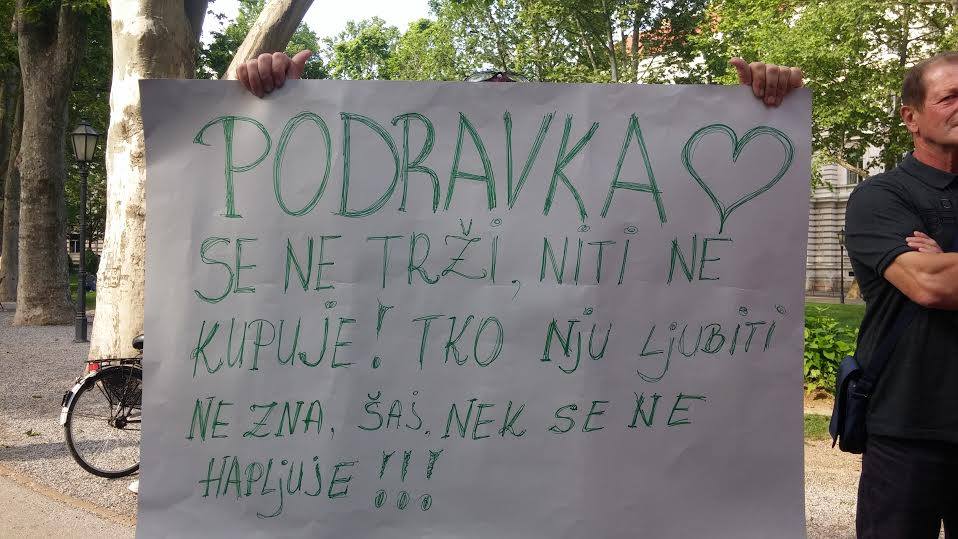 PODRAVKA ♡
SE NE TRŽI, NITI NE
KUPUJE! TKO NJU LJUBITI
NE ZNA, ŠAJ, NEK SE NE
HAPLJUJE!!!